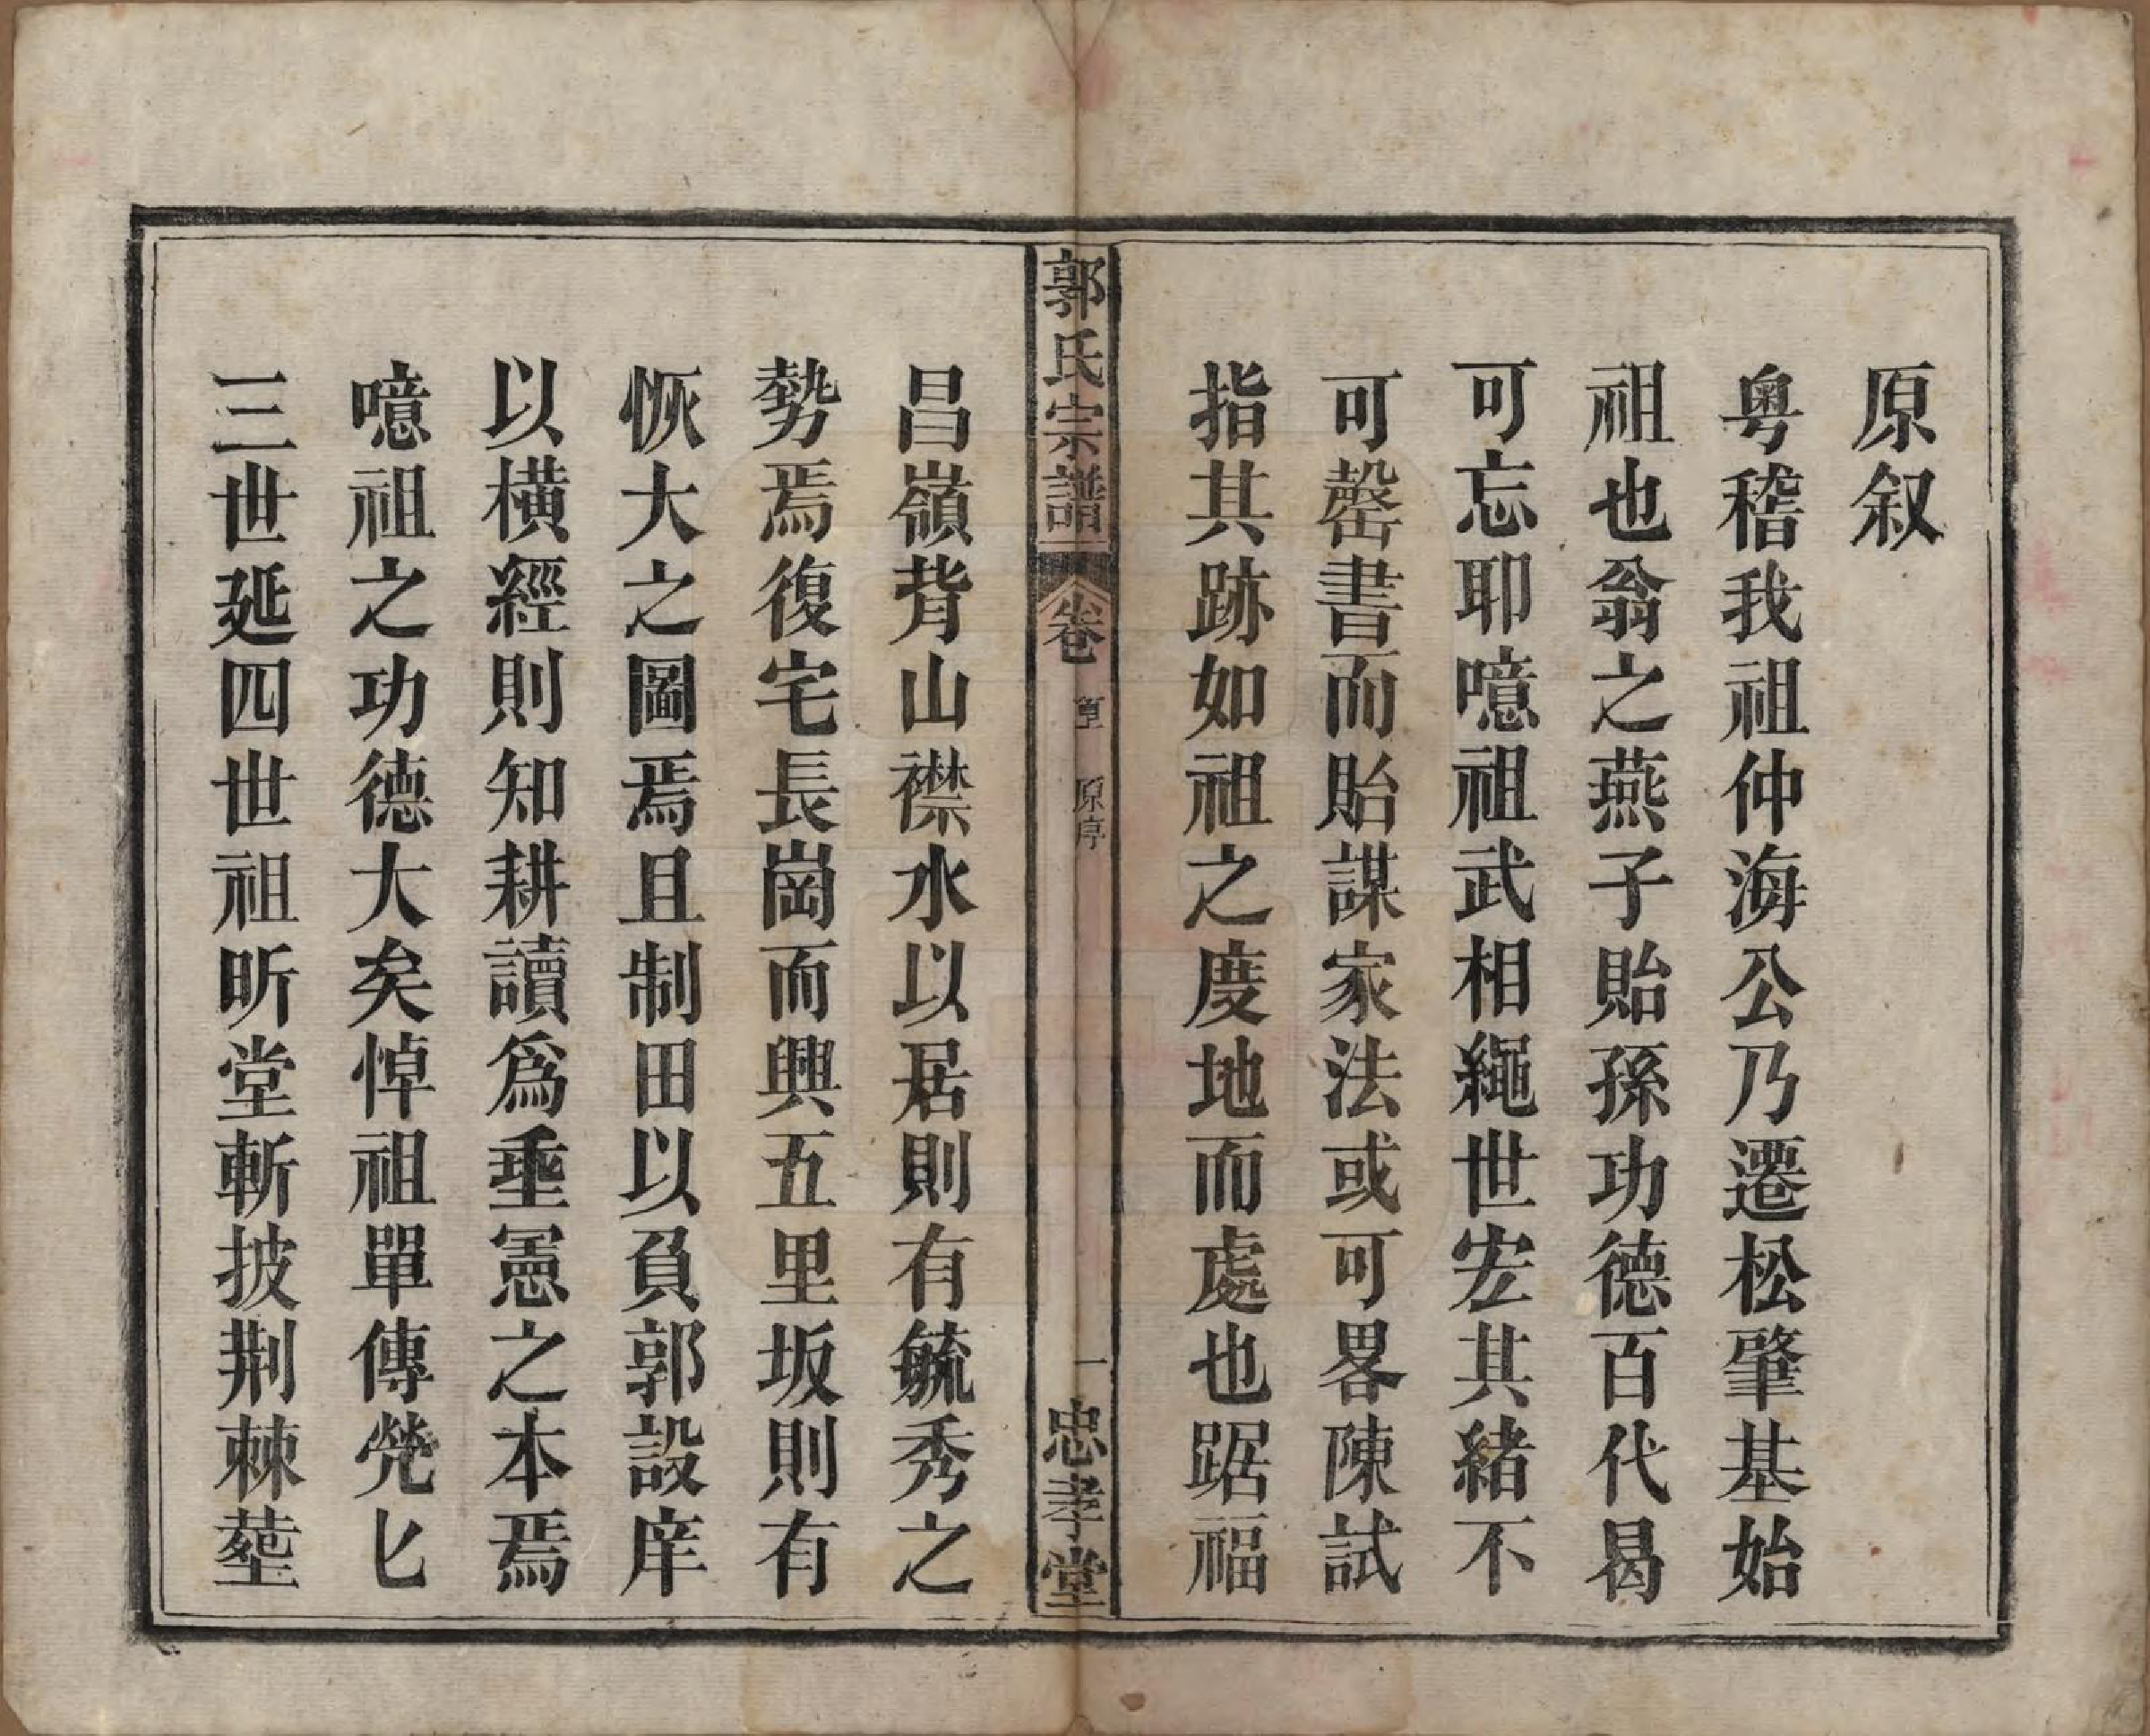 原叙
粤稽我祖仲海公乃遷松肇基始
祖也翁之燕子貽孫功德百代曷
可忘耶噫祖武相繩世宏其緒不
可罄書而貽謀家法或可畧陳試
指其跡如祖之度地而處也踞福
郭氏宗譜
卷
原序
一
忠孝堂
昌嶺背山襟水以居則有毓秀之
勢焉復宅長崗而興五里坂則有
恢大之圖焉且制田以負郭設庠
以橫經則知耕讀爲垂憲之本焉
噫祖之功德大矣悼祖單傳煢匕
三世延四世祖昕堂斬披荆棘塟